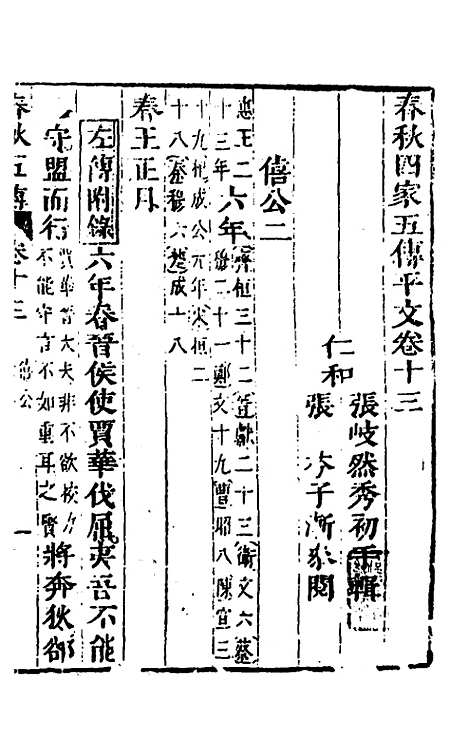 春秋四家五傳平文卷十三
仁和
張岐然秀初 輯
張 子漸 閱
僖公二
惠王二十三年
六年
齊桓三十二晉獻二十三衛文六蔡
穆二十一鄭文十九曹昭八陳宣三
十九杞成公元年宋桓二
十八秦穆六楚成十八
春王正月
左傳附錄六年春晉侯使賈華伐屈夷吾不能
守盟而行
賈華晉大夫非不欲校力
不能守言不如重耳之賢
將奔狄郤
春秋五傳 卷十三 僖公 一